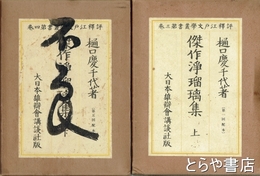 評釋江戸文學叢書第四卷
樋口慶千代著
傑作淨瑠璃集
大日本雄辯會講談社版
評釋江戸文學叢書第三卷
樋口慶千代著
傑作淨瑠璃集 上
大日本雄辯會講談社版
とらや書店